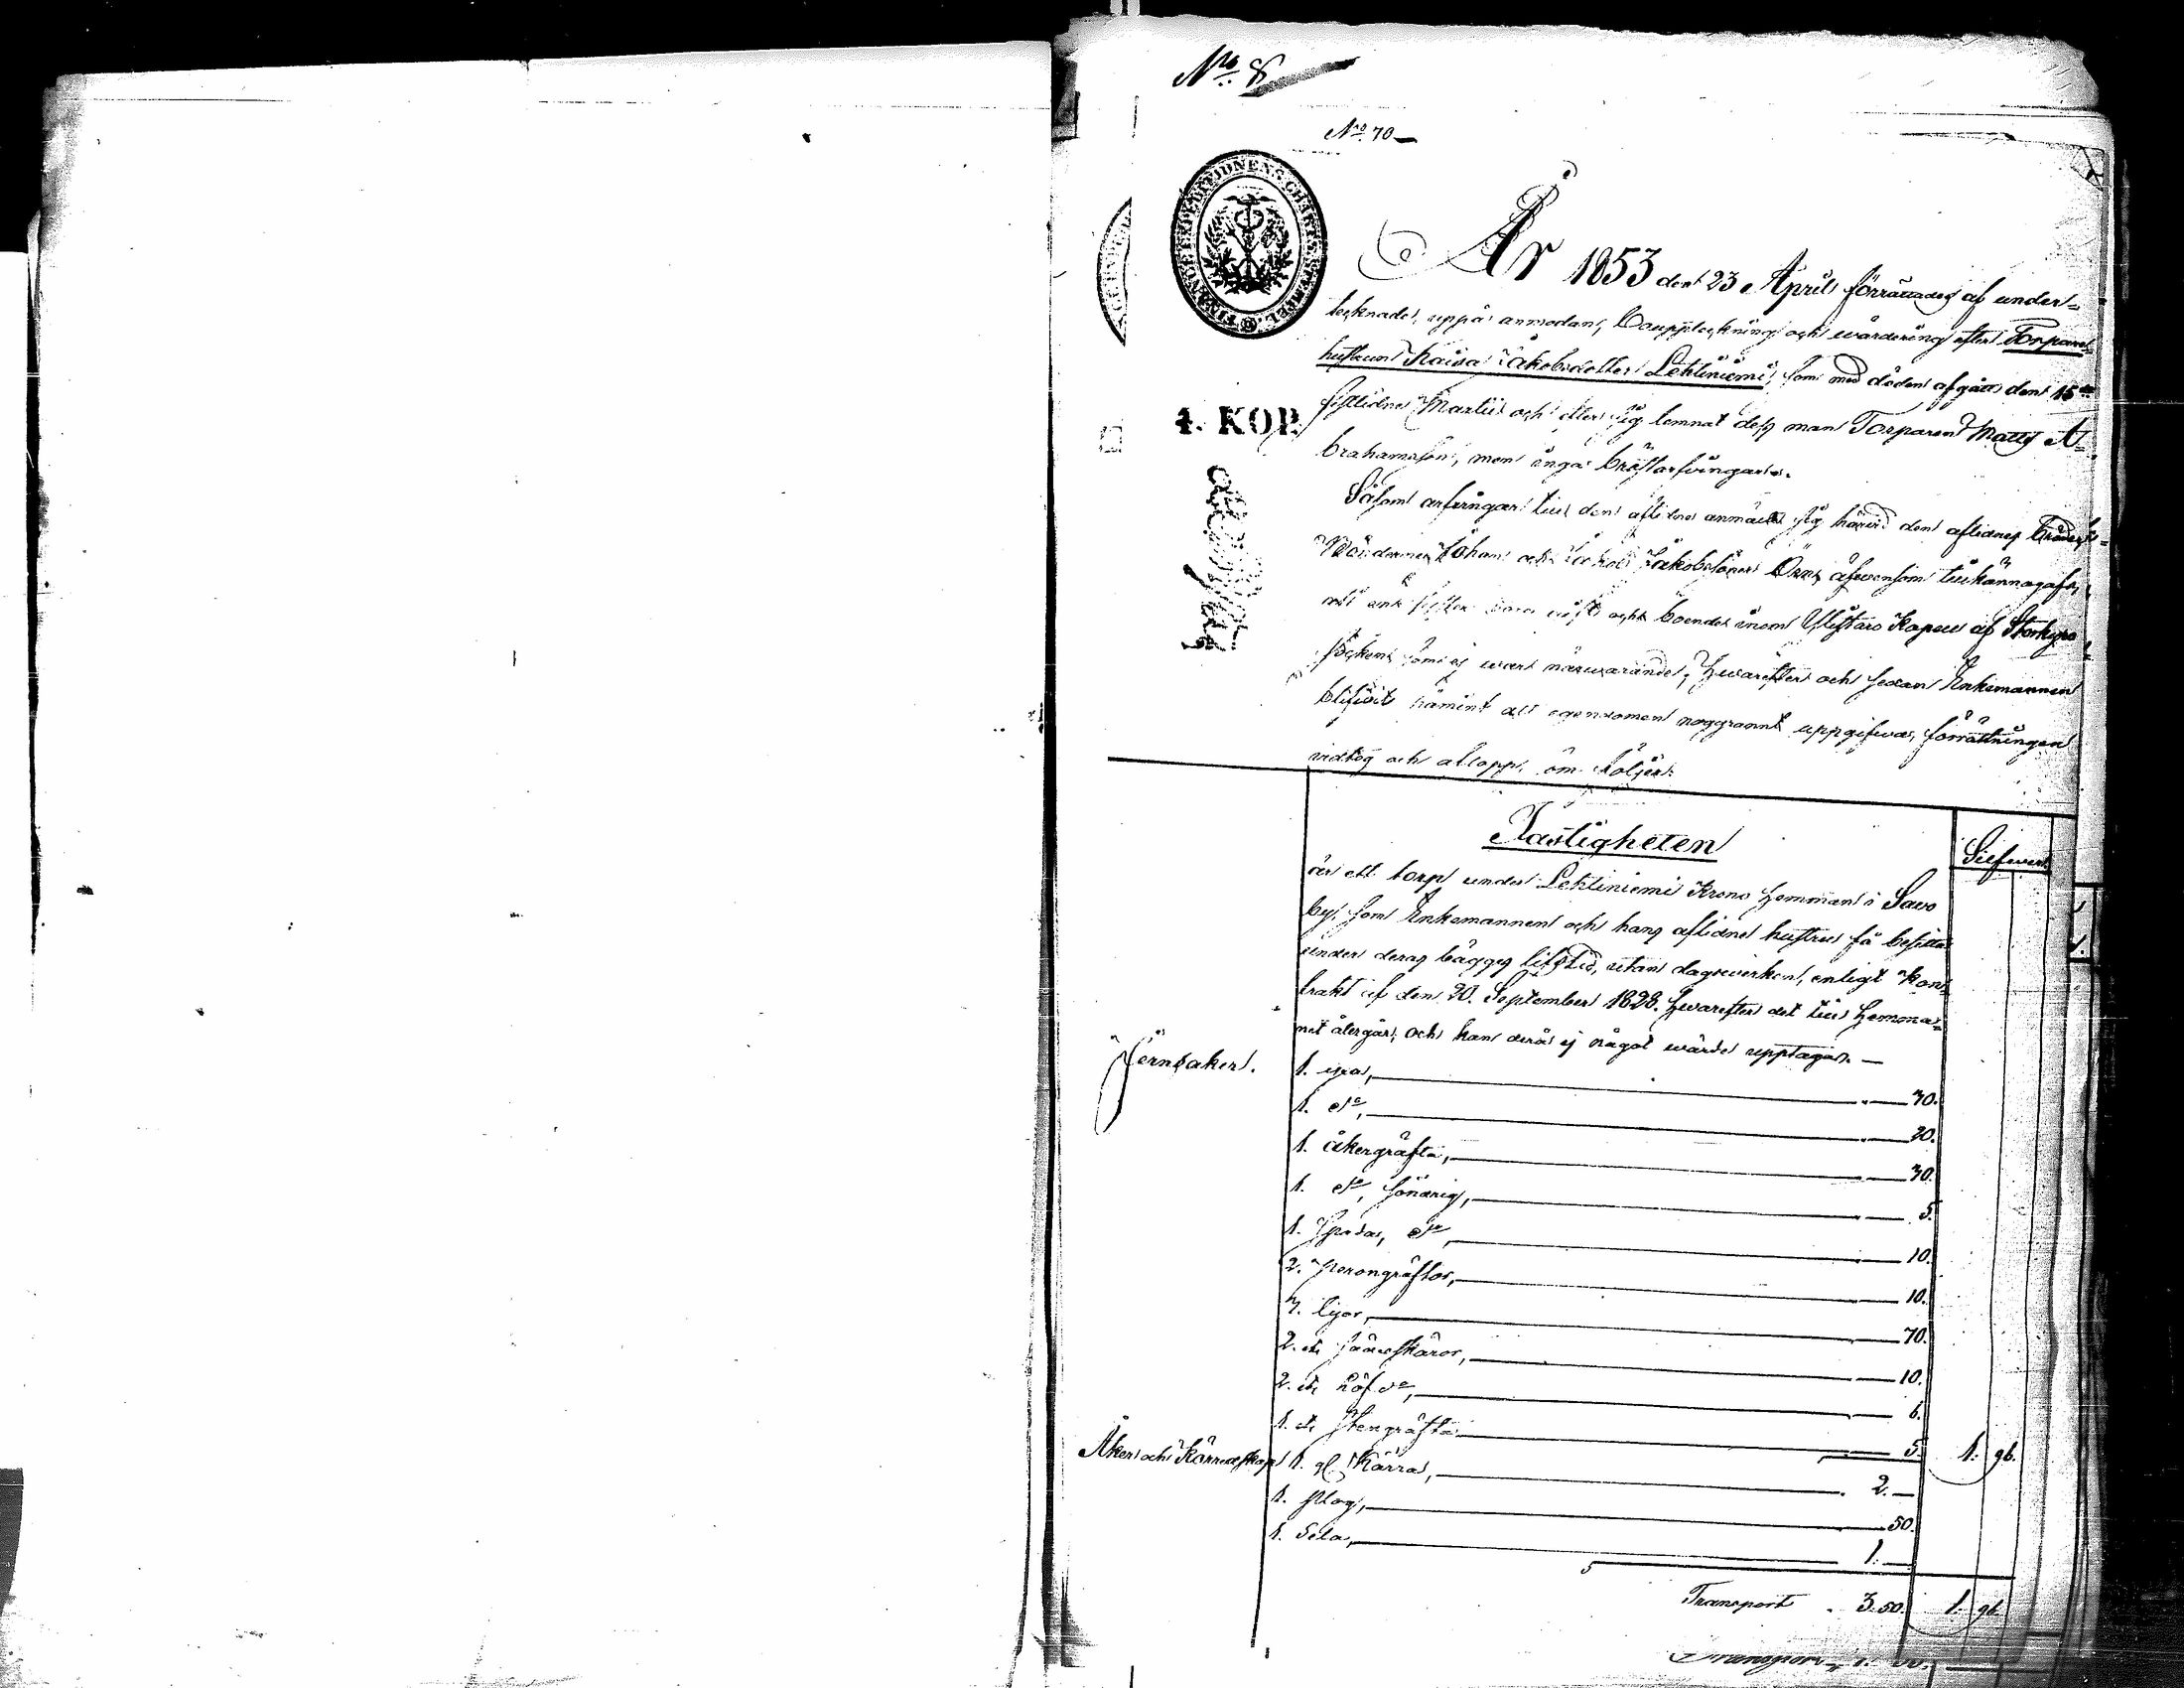 No 8
No 70
FINANCE EXPEDITIDNENS CHARTÆ STEMPEL
4. KOP.
År 1853 den 23 April förrättades af under=
tecknade, uppå anmodan, Bouppteckning och wärdering efter Torpare
hustrun Kaisa Jakobsdotter Lehtiniemi, som med döden afgått den 15de
sistlidne Martii och efter sig lemnat dess man Torparen Matts A=
brahamsson, men inga bröstarfvingar.
Såsom arfvingar till den aflidna anmälte sig härvid den aflidnes bröder
Bönderne Johan och Jakob Jakobssöner äfwensom tillkännagafs,
att och boende inom Ylistaro Kapell af Storkyro
Socken som ej wari närwarande; hwarefter och sedan Enkemannen
blifvit påmint att egendomen noggrannt uppgifwa, förrättningen
vidtog och aflopp som följer:
Fastigheten
Silfwer
är ett torp under Lehtiniemi Krono hemman i Sawo
by, som Enkemannen och hans aflidne hustru få besitta
under deras bägges lifstid, utan dagswerken, enligt Kon=
trakt af den 20. September 1828. hwarefter det till hemma=
net återgår, och kan derå ej något wärde upptagas. —
Jernsaker.
1. yxa, 30.
1. do, 20.
1. åkergräfta, 30.
1. do, sönderig, 5.
1. Spada, do, 10.
2. Perongräftor, 10.
7. lijor, 70.
2. st. skäror, 10.
2. st. do, 6.
1. st. Stengräfta 5. 1. 96.
Åker och Körredskap 1. gl. Kärra, 2. —
1. plog, 50.
1. Sela, 1. —
Transport 3. 50. 1. 96.
Transport